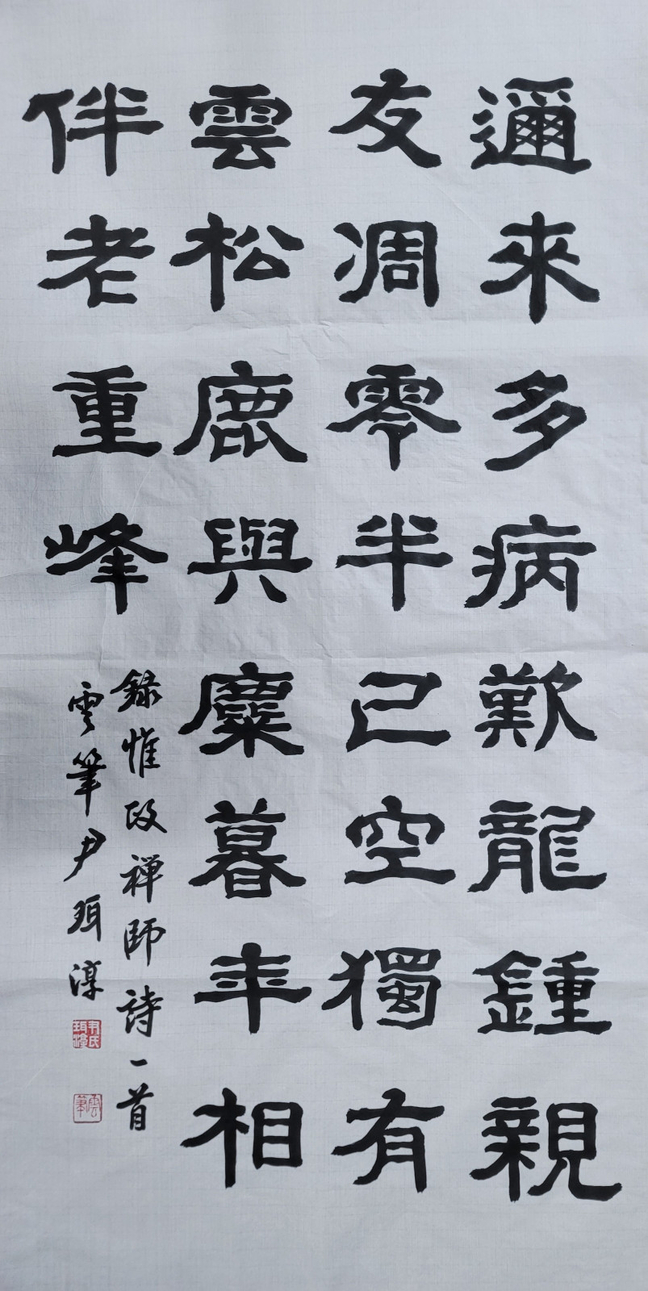 邇來多病歎龍鍾親
友凋零半已空獨有
雲松鹿與麋暮年相
伴老重峰
錄惟政禪師詩一首
雲筆尹珥淳
尹氏珥淳
雲筆